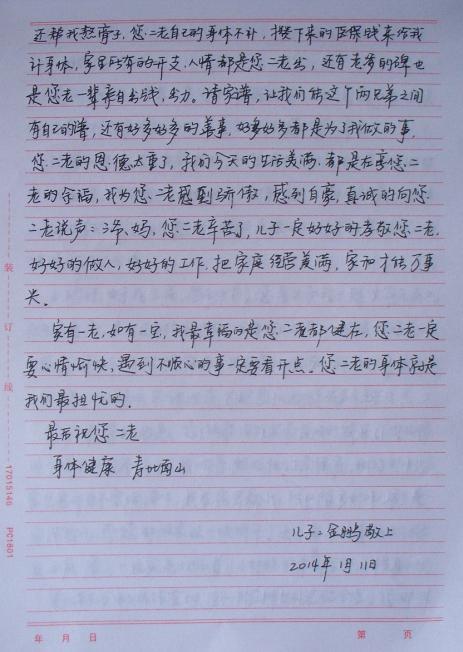 还帮我熬膏子，您二老自己的身体不补，攒下来的医保钱来给我
补身体，家里所有的开支、人情都是您二老出，还有老爹的碑也
是您老一辈亲自出钱，出力。请家谱，让我们能这个两兄弟之间
有自己的谱，还有好多好多的善事，好多好多都是为了我做的事，
您二老的恩德太重了，我们今天的生活美满都是在享您二
老的余福，我为您二老感到骄傲，感到自豪，真诚的向您
二老说声：爷、妈，您二老辛苦了，儿子一定好好的孝敬您二老，
好好的做人，好好的工作，把家庭经营美满，家和才能万事
兴。
家有一老，如有一宝，我最幸福的是您二老都健在，您二老一定
要心情愉快，遇到不顺心的事一定要看开点。您二老的身体就是
我们最担忧的。
最后祝您二老
身体健康 寿比南山
儿子：金鹏敬上
2014年1月11日
年 月 日 第 页
装 订 线 17015146 PC1601